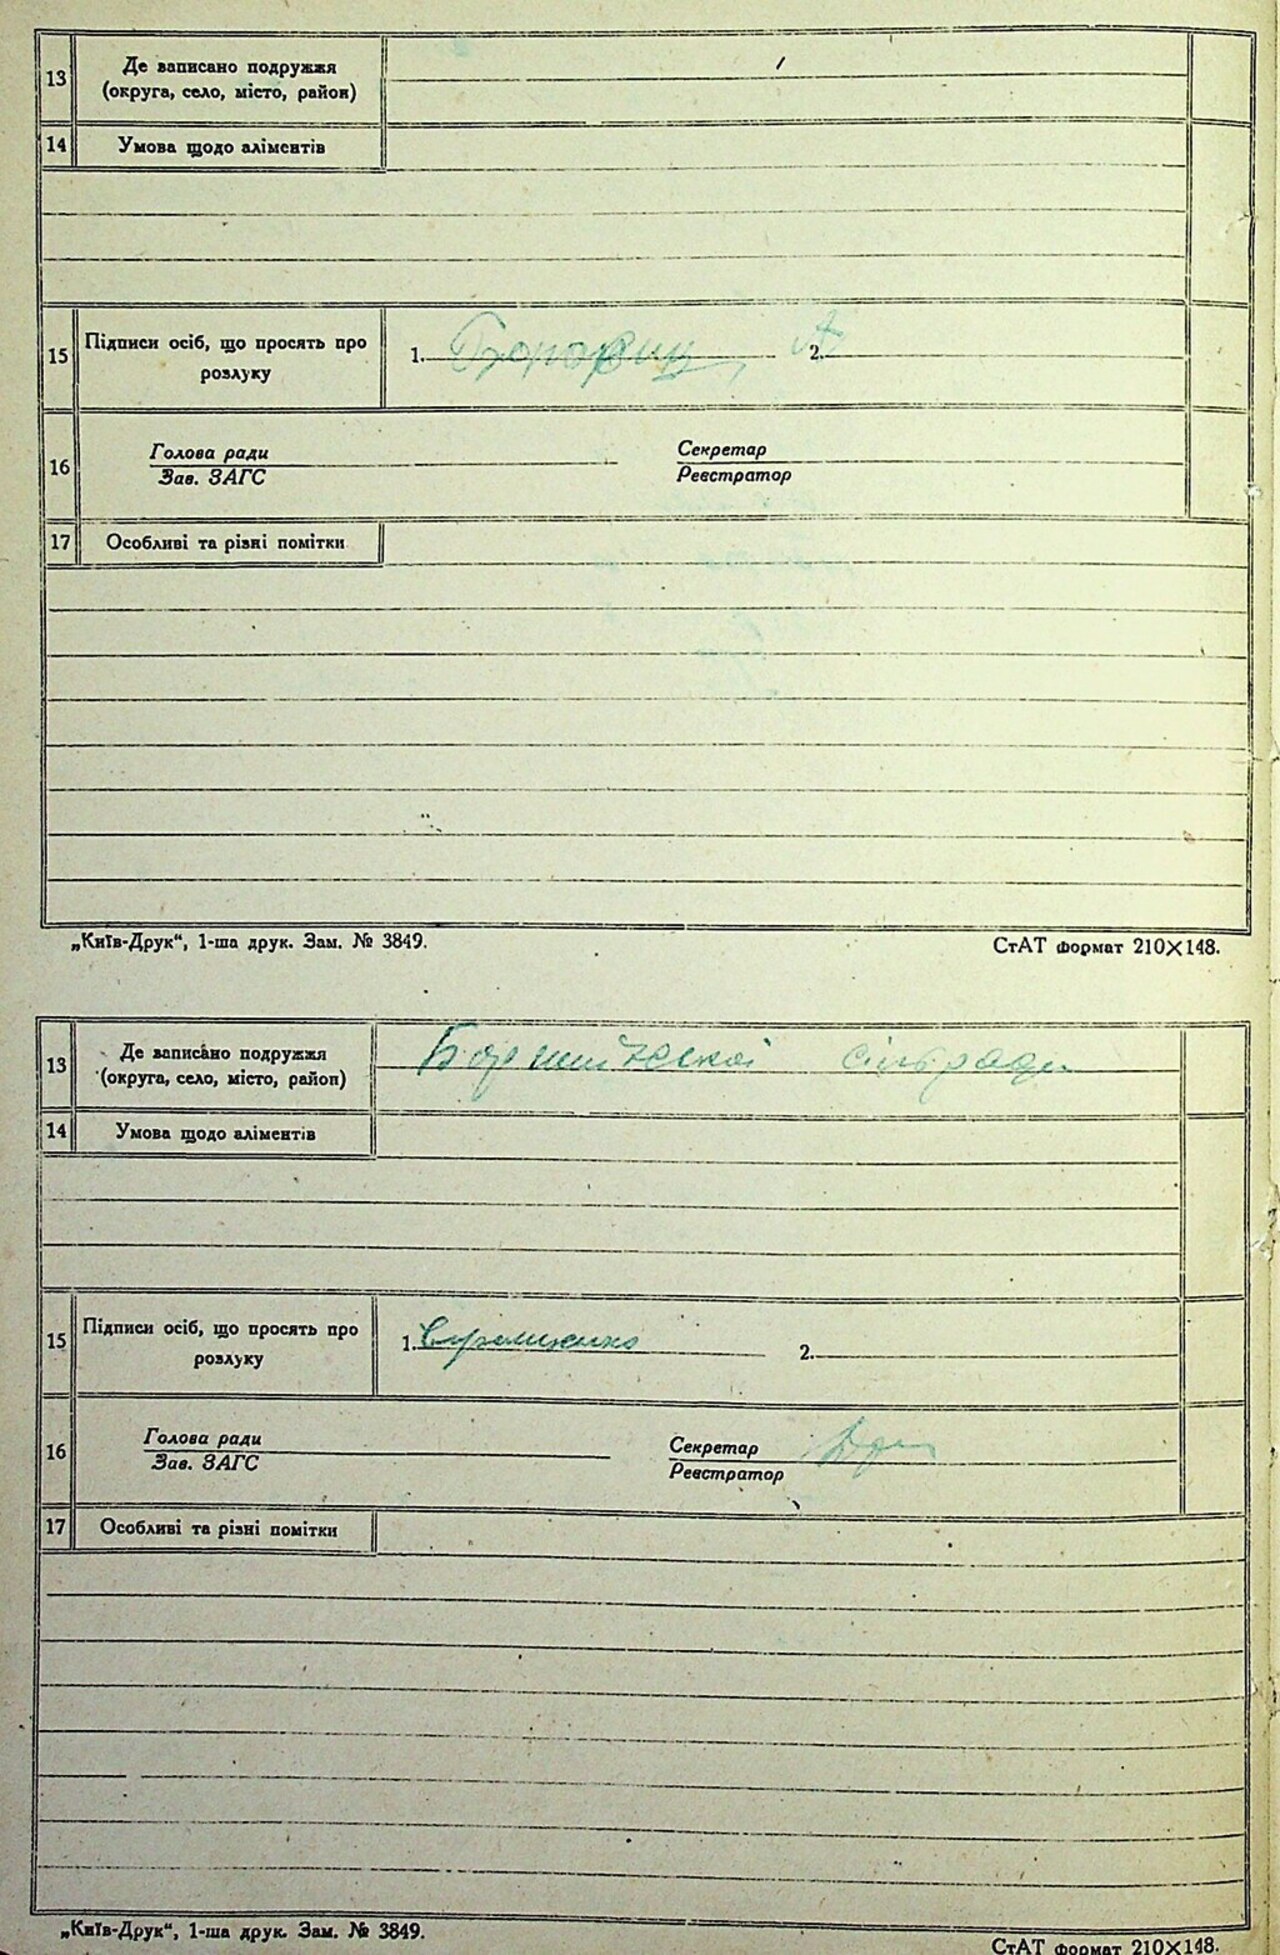 13
Де записано подружжя
(округа, село, місто, район)
14
Умова щодо аліментів
15
Підписи осіб, що просять про
розлуку
1. 2.
16
Голова ради
Зав. ЗАГС
Секретар
Реєстратор
17
Особливі та різні помітки
„Київ-Друк“, 1-ша друк. Зам. № 3849.
СтАТ формат 210×148.
13
Де записано подружжя
(округа, село, місто, район)
сільради
14
Умова щодо аліментів
15
Підписи осіб, що просять про
розлуку
1. 2.
16
Голова ради
Зав. ЗАГС
Секретар
Реєстратор
17
Особливі та різні помітки
„Київ-Друк“, 1-ша друк. Зам. № 3849.
СтАТ формат 210×148.